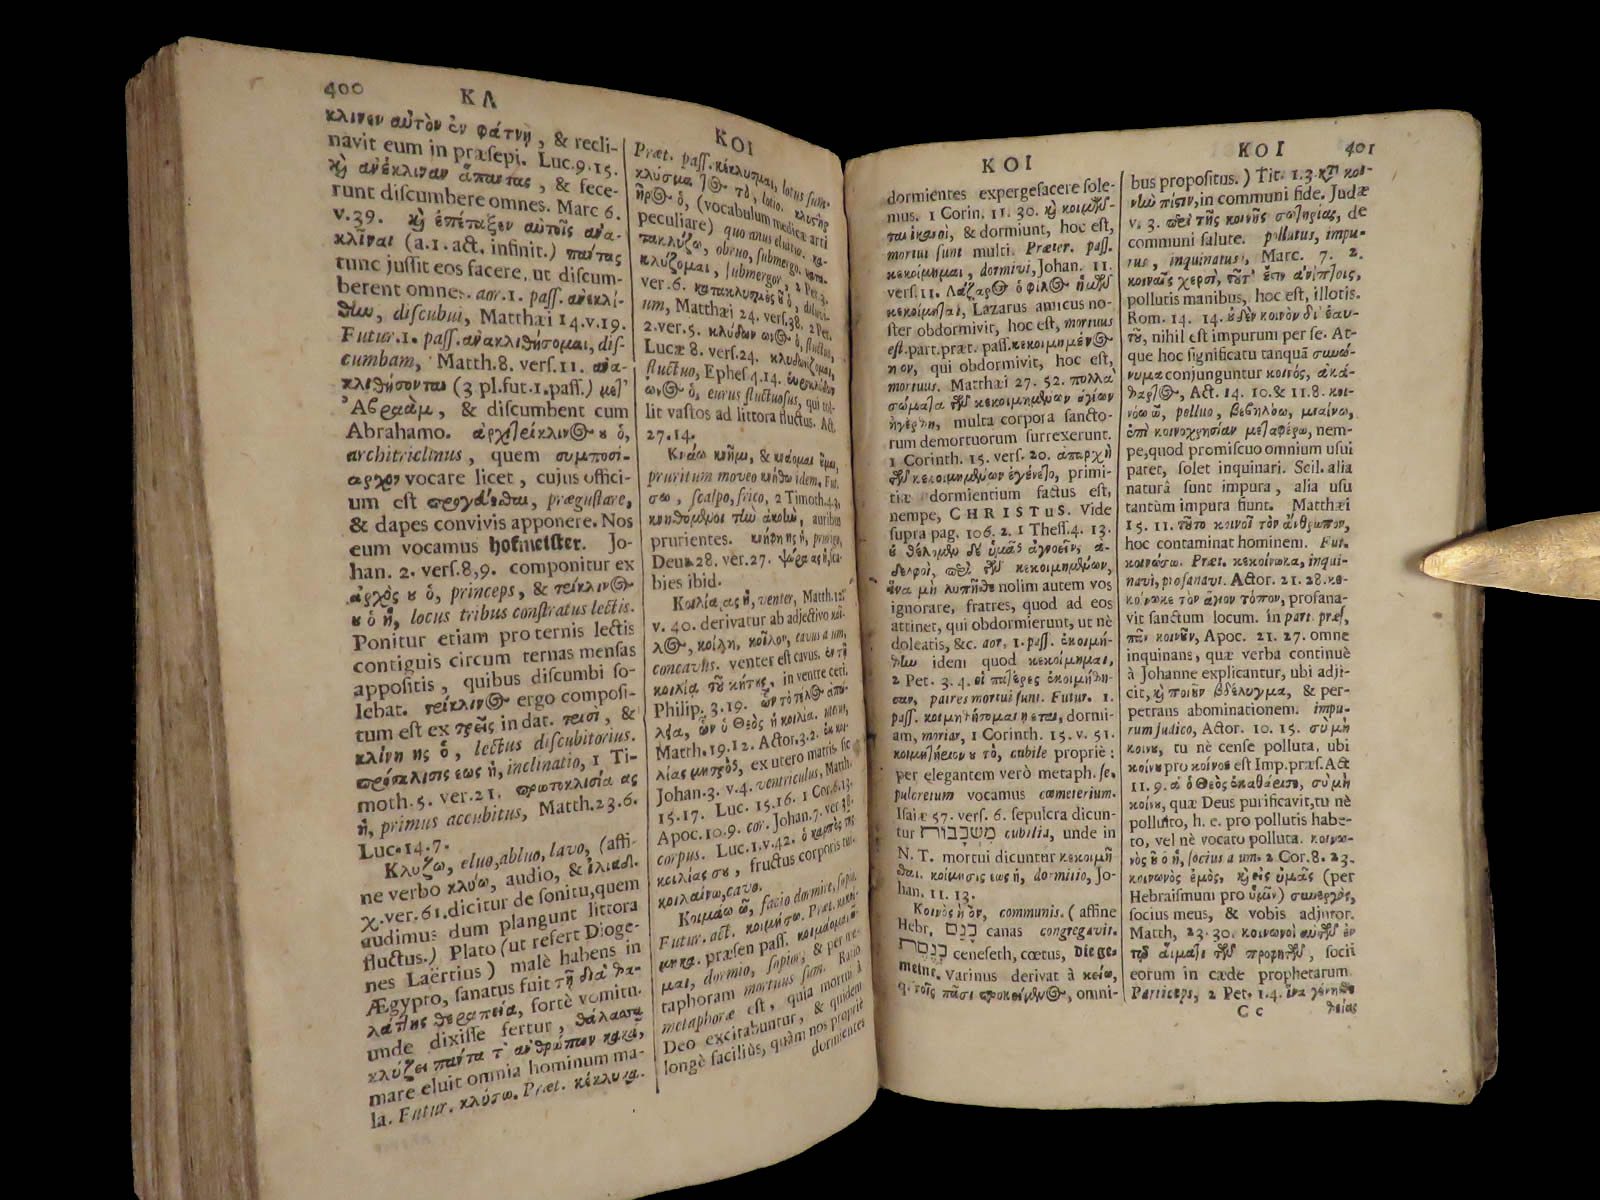 400 ΚΛ
κλινεν αὐτὸν ἐν φάτνῃ, & recli-
navit eum in præsepi. Luc.9.15.
καὶ ἀνέκλιναν ἅπαντας, & fece-
runt discumbere omnes. Marc 6.
v.39. καὶ ἐπέταξεν αὐτοῖς ἀνα-
κλῖναι (a.1.act. infinit.) πάντας
tunc jussit eos facere, ut discum-
berent omnes. aor.1. pass. ἀνεκλί-
θην, discubui, Matthæi 14.v.19.
Futur.1. pass. ἀνακλιθήσομαι, dis-
cumbam, Matth.8. vers.11. ἀνα-
κλιθήσονται (3 pl.fut.1.pass.) μετ'
Ἀβραάμ, & discumbent cum
Abrahamo. ἀρχιτρίκλινος ου ὁ,
architriclinus, quem συμποσί-
αρχον vocare licet, cujus offici-
um est προγεύεσθαι, prægustare,
& dapes convivis apponere. Nos
eum vocamus hofmeister. Jo-
han. 2. vers.8,9. componitur ex
ἀρχὸς οῦ ὁ, princeps, & τρίκλινος
ου ὁ ἡ, locus tribus constratus lectis.
Ponitur etiam pro ternis lectis
contiguis circum ternas mensas
appositis, quibus discumbi so-
lebat. τρίκλινος ergo composi-
tum est ex τρεῖς in dat. τρισὶ, &
κλίνη ης ὁ, lectus discubitorius.
πρόσκλισις εως ἡ, inclinatio, 1 Ti-
moth.5. ver.21. πρωτοκλισία ας
ἡ, primus accubitus, Matth.23.6.
Luc.14.7.
Κλύζω, eluo, abluo, lavo, (affi-
ne verbo κλύω, audio, & ἰλιάδ.
χ.ver.61.dicitur de sonitu,quem
audimus dum plangunt littora
fluctus.) Plato (ut refert Dioge-
nes Laërtius) malè habens in
Ægypto, sanatus fuit τῇ διὰ θα-
λάττης θεραπείᾳ, fortè vomitu.
unde dixisse fertur, θάλασσα
κλύζει πάντα τ' ἀνθρώπων κακά,
mare eluit omnia hominum ma-
la. Futur. κλύσω. Præt. κέκλυκα.
ΚΟΙ
Præt. pass. κέκλυσμαι, lotus sum.
κλύσμα τος τὸ, lotio. κλυστὴρ
ῆρος ὁ, (vocabulum medicæ arti
peculiare) quo anus eluitur. κα-
τακλύζω, obruo, submergo. κατα-
κλύζομαι, submergor, 2 Pet.3.
ver.6. κατακλυσμὸς οῦ ὁ, diluvi-
um, Matthæi 24. vers.38. 2 Pet.
2.ver.5. κλύδων ωνος ὁ, fluctus,
Lucæ 8. vers.24. κλυδωνίζομαι,
fluctuo, Ephes.4.14. εὐροκλύδων
ωνος ὁ, eurus fluctuosus, qui tol-
lit vastos ad littora fluctus. Act.
27.14.
Κνάω κνῆμι, & κνάομαι ῶμαι,
pruritum moveo κνήθω idem. Fut.
σω, scalpo, frico, 2 Timoth.4.3.
κνηθόμενοι τὴν ἀκοὴν, auribus
prurientes. κνήφη ης ἡ, prurigo,
Deut.28. ver.27. ψώρα ας ἡ, sca-
bies ibid.
Κοιλία ας ἡ, venter, Matth.12.
v. 40. derivatur ab adjectivo κοῖ-
λος, κοίλη, κοῖλον, cavus a um,
concavus. venter est cavus. ἐν τῇ
κοιλίᾳ τοῦ κήτους, in ventre ceti.
Philip. 3.19. ὧν τὸ τέλος ἀπώ-
λεια, ὧν ὁ Θεὸς ἡ κοιλία.
Matth.19.12. Actor.3.2. ἐκ κοι-
λίας μητρὸς, ex utero matris. sic
Johan.3. v.4. ventriculus, Matth.
15.17. Luc. 15.16. 1 Cor.6.13.
Apoc.10.9. cor. Johan.7. ver 38.
corpus. Luc.1.v.42. ὁ καρπὸς τῆς
κοιλίας σου, fructus corporis tui.
κοιλαίνω, cavo.
Κοιμάω ῶ, facio dormire, sopio.
Futur. act. κοιμήσω. Præt. κεκοί-
μηκα. præsen pass. κοιμάομαι ῶ-
μαι, dormio, sopior, & per me-
taphoram mortuus sum. Ratio
metaphoræ est, quia mortui à
Deo excitabuntur, & quidem
longè faciliùs, quàm nos propriè
dormientes
ΚΟΙ
dormientes expergefacere sole-
mus. 1 Corin. 11. 30. καὶ κοιμῶν-
ται ἱκανοὶ, & dormiunt, hoc est,
mortui sunt multi. Præter. pass.
κεκοίμημαι, dormivi, Johan. 11.
vers.11. Λάζαρος ὁ φίλος ἡμῶν
κεκοίμηται, Lazarus amicus no-
ster obdormivit, hoc est, mortuus
est.part.præt. pass.κεκοιμημένος
η ον, qui obdormivit, hoc est,
mortuus. Matthæi 27. 52. πολλὰ
σώματα τῶν κεκοιμημένων ἁγίων
ἠγέρθη, multa corpora sancto-
rum demortuorum surrexerunt.
1 Corinth. 15. vers. 20. ἀπαρχὴ
τῶν κεκοιμημένων ἐγένετο, primi-
tiæ dormientium factus est,
nempe, CHRISTUS. Vide
supra pag. 106. 2. 1 Thess.4. 13.
οὐ θέλομεν δὲ ὑμᾶς ἀγνοεῖν, ἀ-
δελφοὶ, περὶ τῶν κεκοιμημένων,
ἵνα μὴ λυπῆσθε nolim autem vos
ignorare, fratres, quod ad eos
attinet, qui obdormierunt, ut nè
doleatis, &c. aor. 1. pass. ἐκοιμή-
θην idem quod κεκοίμημαι,
2 Pet. 3. 4. οἱ πατέρες ἐκοιμήθη-
σαν, patres mortui sunt. Futur. 1.
pass. κοιμηθήσομαι ῃ εται, dormi-
am, moriar, 1 Corinth. 15. v. 51.
κοιμητήριον ου τὸ, cubile propriè:
per elegantem verò metaph. se-
pulcretum vocamus cœmeterium.
Isaiæ 57. vers. 6. sepulcra dicun-
tur מִשְׁכָּבוֹת cubilia, unde in
N. T. mortui dicuntur κεκοιμῆ-
σθαι. κοίμησις εως ἡ, dormitio, Jo-
han. 11. 13.
Κοινὸς ὴ ὸν, communis. (affine
Hebr. כָּנַס canas congregavit.
כְּנֶסֶת ceneseth, cœtus, Die ge-
meine. Varinus derivat à κείω,
q. τοῖς πᾶσι προκείμενος, omni-
ΚΟΙ 401
bus propositus.) Tit. 1.3. κατὰ κοι-
νὴν πίστιν, in communi fide. Judæ
v. 3. περὶ τῆς κοινῆς σωτηρίας, de
communi salute. pollutus, impu-
rus, inquinatus, Marc. 7. 2.
κοιναῖς χερσὶ, τοῦτ' ἔστιν ἀνίπτοις,
pollutis manibus, hoc est, illotis.
Rom. 14. 14. οὐδὲν κοινὸν δι' ἑαυ-
τοῦ, nihil est impurum per se. At-
que hoc significatu tanquã συνώ-
νυμα conjunguntur κοινὸς, ἀκά-
θαρτος, Act. 14. 10.& 11.8. κοι-
νόω ῶ, polluo, βεβηλόω, μιαίνω,
ἐπὶ κοινοχρησίαν μεταφέρω, nem-
pe,quod promiscuo omnium usui
patet, solet inquinari. Scil. alia
naturâ sunt impura, alia usu
tantùm impura fiunt. Matthæi
15. 11. τοῦτο κοινοῖ τὸν ἄνθρωπον,
hoc contaminat hominem. Fut.
κοινώσω. Præt. κεκοίνωκα, inqui-
navi, profanavi. Actor. 21. 28. κε-
κοίνωκε τὸν ἅγιον τόπον, profana-
vit sanctum locum. in part. præs.
πᾶν κοινοῦν, Apoc. 21. 27. omne
inquinans, quæ verba continuè
à Johanne explicantur, ubi adji-
cit, καὶ ποιοῦν βδέλυγμα, & per-
petrans abominationem. impu-
rum judico, Actor. 10. 15. σὺ μὴ
κοίνου, tu nè cense polluta, ubi
κοίνου pro κοίνοε est Imp.præs. Act
11. 9. ἃ ὁ Θεὸς ἐκαθάρισε, σὺ μὴ
κοίνου, quæ Deus purificavit, tu nè
polluito, h. e. pro pollutis habe-
to, vel nè vocato polluta. κοινω-
νὸς οῦ ὁ ἡ, socius a um. 2 Cor.8. 23.
κοινωνὸς ἐμὸς, καὶ εἰς ὑμᾶς (per
Hebraismum pro ὑμῶν) συνεργὸς,
socius meus, & vobis adjutor.
Matth. 23. 30. κοινωνοὶ αὐτῶν ἐν
τῷ αἵματι τῶν προφητῶν, socii
eorum in cæde prophetarum.
Particeps, 2 Pet. 1.4. ἵνα γένησθε
C c θείας